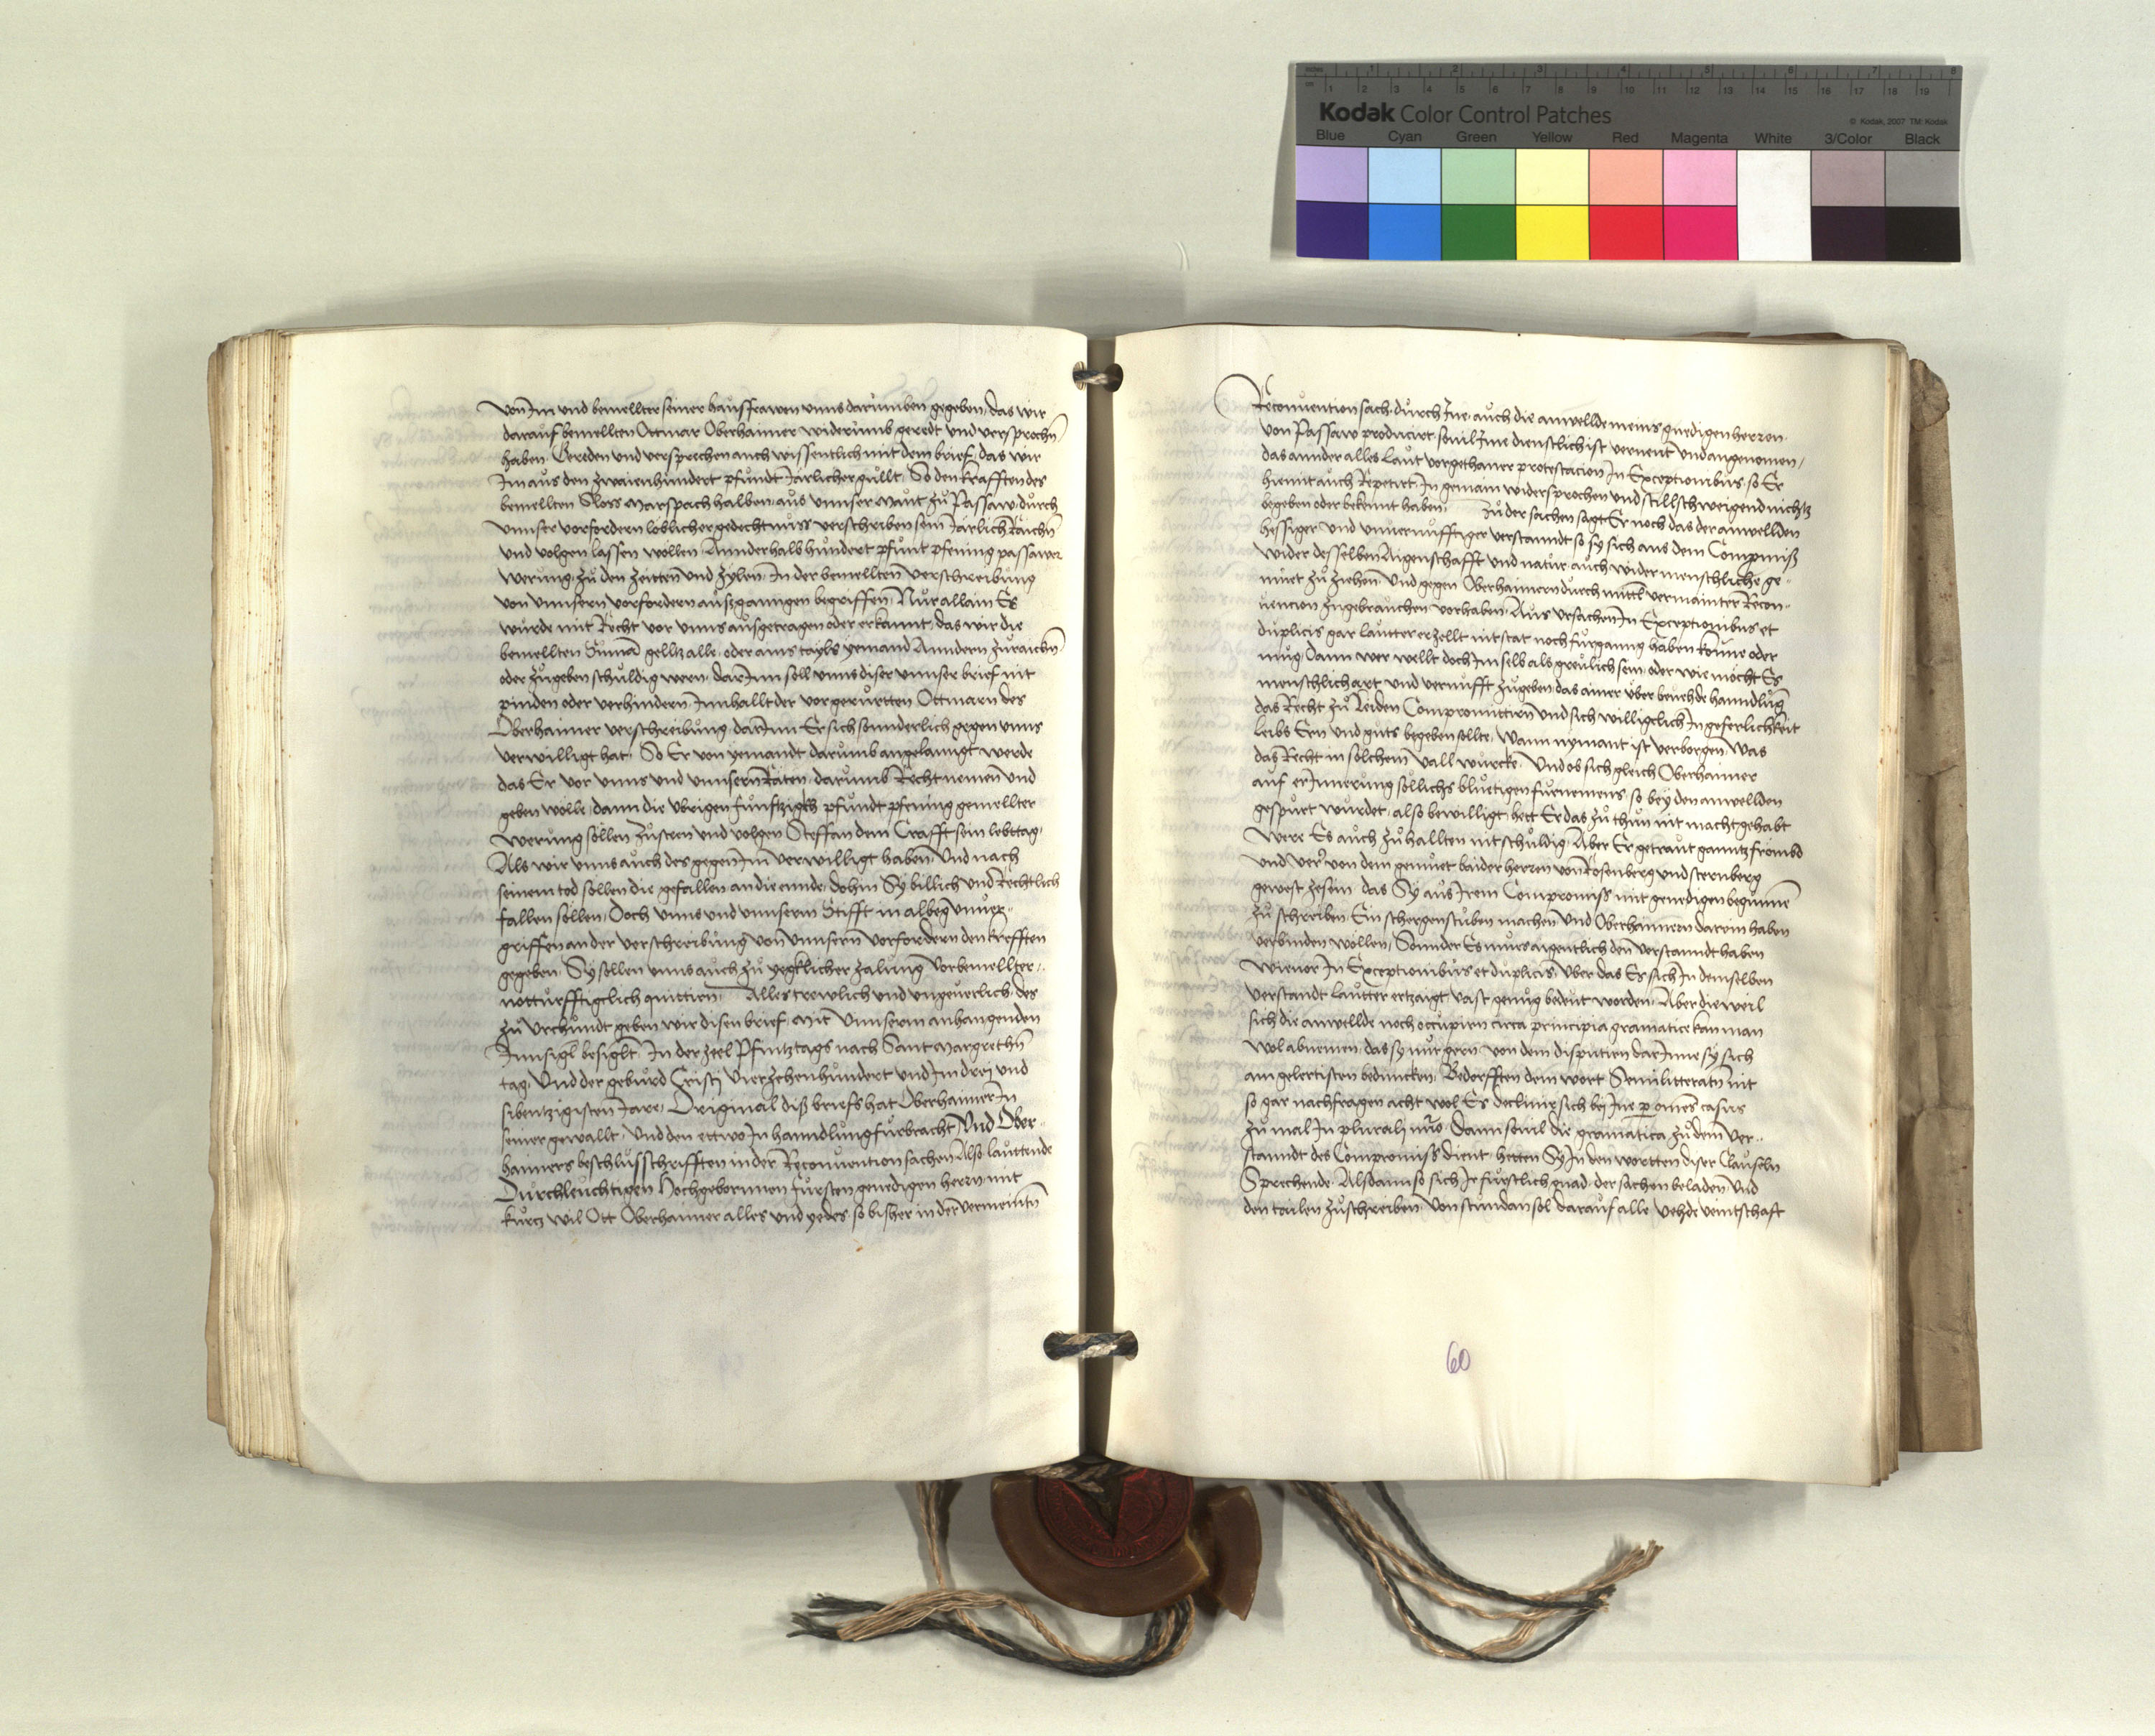 inches 1 2 3 4 5 6 7 8
cm 1 2 3 4 5 6 7 8 9 10 11 12 13 14 15 16 17 18 19
Kodak Color Control Patches © Kodak, 2007 TM: Kodak
Blue Cyan Green Yellow Red Magenta White 3/Color Black
von Im und bemellter seiner hausfrawen unns darumben gegeben, das wir
darauf bemellten Ottmar Oberhaimer widerumb geredt und versprochn
haben Gereden und versprechen auch wissentlich mit dem brief, das wir
Im aus den zwaienhundert pfundt Järlicher güllt, So den krafften des
bemellten Sloss Marspach halben, aus unnser Maut zu Passaw, durch
unnser vorfordern loblicher gedechtnuss verschriben sein Järlich Raichn
und volgen lassen wollen Annderhalb hundert pfunt pfening passawer
werung, zu den zeitten und zylen, In der bemellten verschreibung
von unnsern vorfordern außganngen begriffen, Nur allain Es
wurde mit Recht vor unns ausgetragen oder erkannt, das wir die
bemellten Suma gelltz alle, oder ains tayls yemand Anndern zuraichn
oder zugeben schuldig wern, darInn soll unns diser unnser brief nit
pinden oder verhindern, Innhallt der vorgerürtten Ottmarn des
Oberhaimer verschreibung, darInn Er sich sonnderlich gegen unns
verwilligt hat, So Er von yemandt darumb angelanngt werde
das Er vor unns und unnsern Räten, darumb Recht nemen und
geben wolle, dann die übrigen funftzigkh pfundt pfening gemellter
werung sollen zusteen und volgen Steffan dem Crafft sein lebttag,
Als wir unns auch des gegen Im verwilligt haben, Und nach
seinem tod sollen die gefallen an die ennde, dohin Sy billich und Rechtlich
fallen sollen, Doch unns und unnserm Stifft in albeg unuer-
griffen an der verschreibung von unnsern vorfordern den krefften
gegeben, Sy sollen unns auch zu yegklicher zalung vorbemellter
notturfftigclich quittirn, Alles trewlich und ungeuerlich, des
zu urchundt geben wir disen brief, mit unnserm anhangenden
Innsigl besiglt, In der zeel Pfintztags nach Sant Margrethn
tag, Und der geburd Cristi vierzehenhundert und Im drei und
sibentzigisten Jare, Original diss briefs hat Oberhaimer In
seiner gewallt, Und den ettwo In hanndlung fürbracht, Und Ober-
haimers beschlusschrifften in der Reconuention sachen Also lauttende
Durchleuchtigen Hochgebornnen fursten genedigen herrn, mit
kurtz wil Ott Oberhaimer alles und yedes, so bisher in der vermeintn
Reconuention sach, durch Ine, auch die anwellde meins gnedigen herren
von Passaw producirt, souil Ime dienstlich ist vernent und angenomen,
das annder alles laut vorgethaner protestacion In Exceptionibus, so Er
hiemit auch Repetirt, In gemain widersprochen und stillschweigend nichtz
begeben oder bekennt haben, Zu der sachen sagt Er noch das der anwellden
hessiger und unuernufftiger verstanndt so sy sich aus dem Compromiss
wider desselben Aigenschafft und natur, auch wider menschliche ge-
müet zu ziehen, und gegen Oberhaimern durch mittl vermainter Recon-
uencion zugebrauchen vorhaben, Aus ursachen In Exceptionibus et
duplicis gar lautter erzellt nit stat noch furganng haben konne oder
müg, dann wer wellt doch Im selb als greulich sein, oder wie möcht Es
menschlich art und vernufft zugeben, das ainer über beuehde hanndlung
das Recht zu leiden Compromittirn und sich willigclich In geferlichkeit
leibs Ern und guts begeben sollte, wann nymant ist verborgen, was
das Recht in solchem vall würcke, Und ob sich gleich Oberhaimer
auf erInnerung sollichs bluetigen furnemens, so bey den anwellden
gespurt wurdet, also bewilligt, hett Er das zu thun nit macht gehabt
were Es auch zu hallten nit schuldig, Aber Er getraut ganntz frömbd
und verr von dem gemuet baider herrn von Rosenberg und Sternberg
gewest zesein, das Sy aus Irem Compromiss mit genedigen beginnen
zu schreiben, Ein schergenstuben machen und Oberhaimern darein haben
verbinden wöllen, Sonnder Es mues aigentlich den verstanndt haben
wie uor In Exceptionibus et duplicis, über das Es sich In demselben
verstandt lautter ertzaigt vast genug bedeut worden, Aber die weil
sich die anwellde noch occupirn circa principia gramatice kan man
wol abnemen, das sy nur gern von dem disputirn darInne sy sich
am gelertisten beduncken, Bedörfften dem wort Semilitteratn nit
so gar nachfragen acht wol Es declinir sich bej Ine per omnes casus
zu mal In plurali nuo, Dann souil die gramatica zu dem ver-
stanndt des Compromiss dient, hetten Sy In den wortten diser Clauseln
Sprechende, Alsdann so sich Ir furstlich gnad der sachen beladen und
den tailen zuschreiben, Von stundan sol darauf alle vehde veintschaft
60